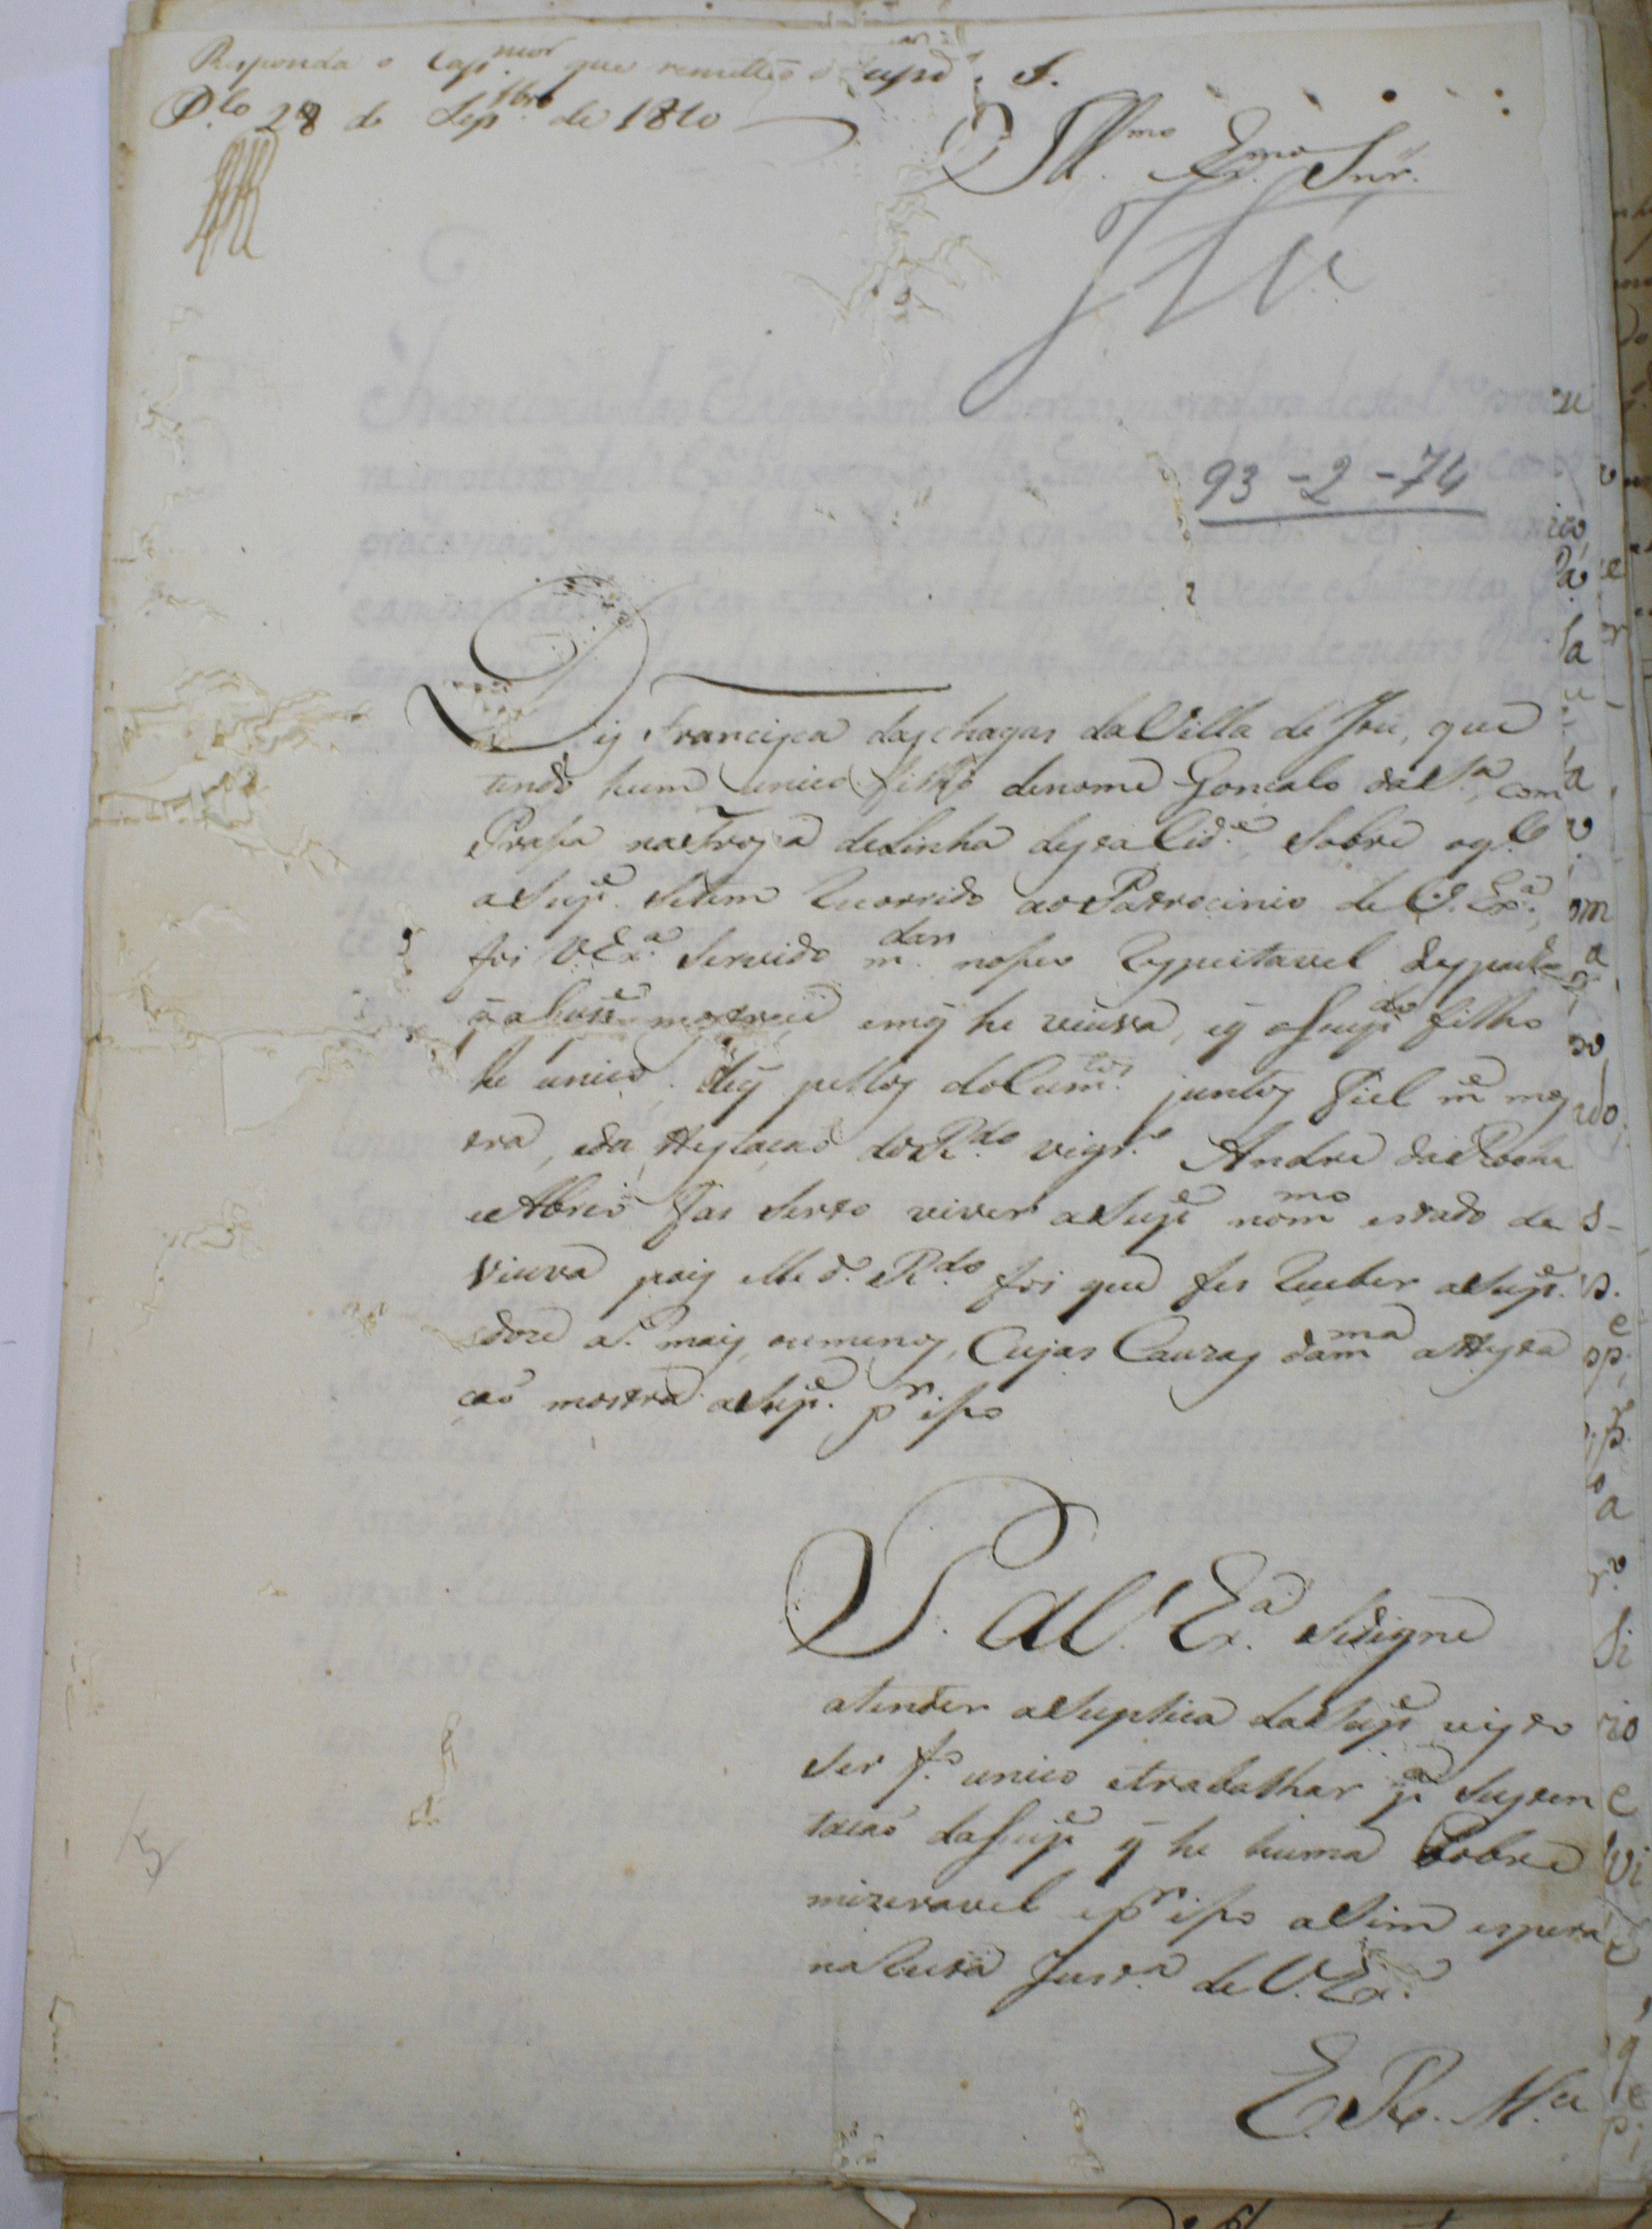 Responda o Cap.mor que remetteo o Supp.e S.
P.lo 28 de Sep.tbro de 1810
Ill.mo Ex.mo Snr.
Itú
93-2-74
Diz Francisca das chagas da Villa de Ytu, que
tendo hum unico filho denome Goncalo da S.a, com
Prasa na Tropa de Linha desta Cid.e Sobre oq.l
a Sup.e Setem Recorrido ao Patrocinio de V. Ex.a,
foi V Ex.a Servido m.dar noseo Respeitavel despacho
q a Sup.e mostrace emq he viuva, eq o Sup.do filho
he unico. Eis q pellos docum.tos juntos fiel m.e mos
tra, eda Atestacaó do R.do vigr.o Andre da Rocha
e Abreo fas Serto viver a Sup.e nom.mo estado de
Viuva pois elle d.o R.do foi que fes Receber a Sup.e
doze a.s mais oumenos, Cujas Cauzas dam.ma attesta
caó mostra a Sup.e p.r iso
P. a V. Ex.a Sedigne
atender a Suplica da Sup.e visto
Ser f.o unico etrabalhar p.a Susten
tacaó da Sup.e q he huma Pobre
mizeravel e p.r iso asim espera
na Reta Just.a de V. Ex.a
E. R. M.ce